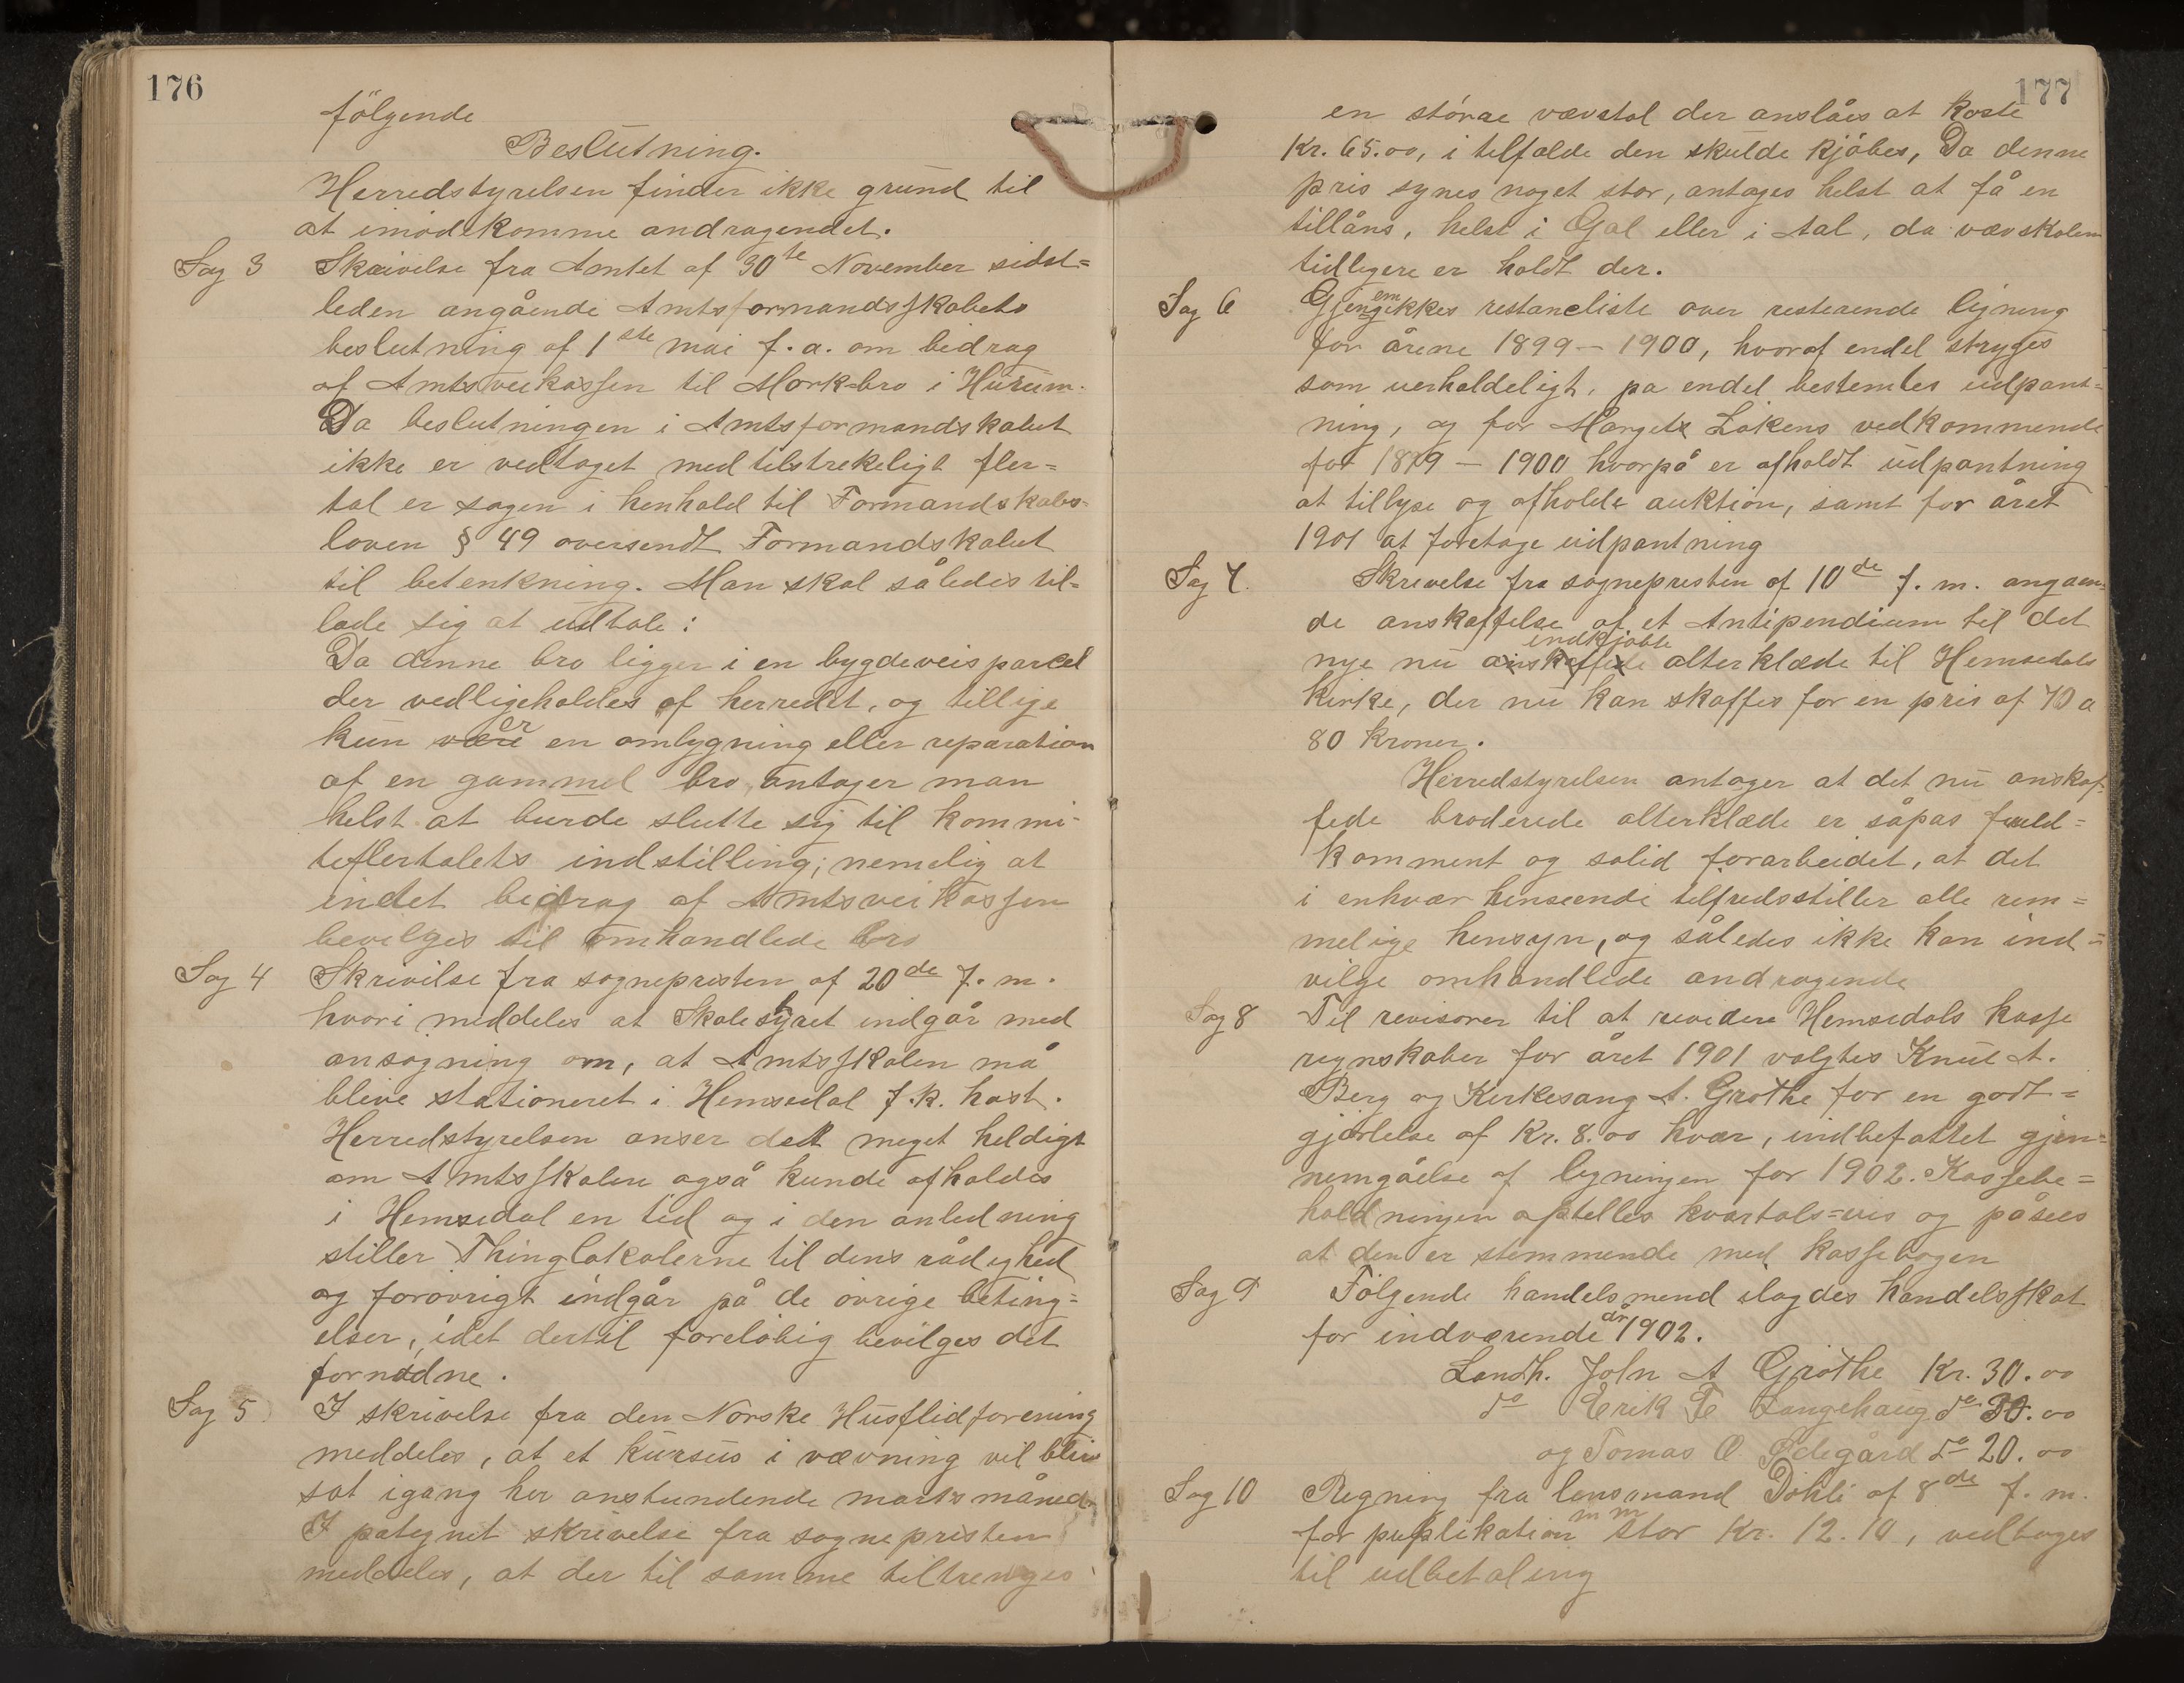 176
følgende
Beslutning.
Herredstyrelsen finder ikke grund til
at imødekomme andragendet.
Sag 3 Skrivelse fra Amtet af 30te November sidst=
leden angående Amtsformandsskabets
beslutning af 1ste mai f.a. om bidrag
af Amtsveikassen til Mork-bro i Hurum.
Da beslutningen i Amtsformandskabet
ikke er vedtaget med tilstrekeligt fler=
tal er sagen i henhold til Formandskabs=
loven § 49 oversendt Formandskabet
til betenkning. Man skal således til=
lade sig at udtale:
Da denne bro ligger i en bygdeveisparcel
der vedligeholdes af herredet, og tillige
kun er en omlygning eller reparation
af en gammel bro, antager man
helst at burde slutte sig til kommi-
teflertalets indstilling; nemelig at
indet bidrag af Amtsveikassen
bevilges til omhandlede bro
Sag 4 Skrivilse fra sognepresten af 20de f.m.
hvori meddeles at Skolestyret indgår med
ansøgning om, at Amtsskolen må
blive stationeret i Hemsedal f.k. høst.
Herredstyrelsen anser det meget heldigt
om Amtsskolen også kunde afholdes
i Hemsedal en tid og i den anledning
stiller Thinglokalerne til dens rådighed
og forøvrigt indgår på de øvrige beting=
elser, idet dertil foreløbig bevilges det
fornødne.
Sag 5 I skrivelse fra den Norske Husflidforening
meddeles, at et kursus i vævning vil blive
sat igang her anstundende marts måned.
I påtegnet skrivelse fra sognepresten
meddeles, at der til samme tiltrenges
177
en større vævstol der anslåes at koste
Kr. 65.00, i tilfælde den skulde kjøbes, Da denne
pris synes noget stor, antages helst at få en
tillåns, helst i Gol eller i Aal, da vævskolen
tidligere er holdt der.
Sag 6 Gjenemgikkes restanceliste over resterende ligning
for årene 1899 – 1900, hvoraf endel stryges
som uerholdeligt, pa endel bestemtes udpant=
ning, og for Margit Løkens vedkommende
for 1899 – 1900 hvorpå er afholdt udpantning
at tillyse og afholde auktion, samt for året
1901 at foretage udpantning
Sag 7. Skrivelse fra sognepresten af 10de f.m. angaaen=
de anskaffelse af et Antipendium til det
nye nu indkjøbte alterklæde til Hemsedals
kirke, der nu kan skaffes for en pris af 70 a
80 kroner.
Herredstyrelsen antager at det nu anskaf=
fede broderede alterklæde er såpas fuld=
komment og solid forarbeidet, at det
i enhver henseende tilfredsstiller alle rim=
melige hensyn, og således ikke kan ind=
vilge omhandlede andragende
Sag 8 Til revisorer til at revidere Hemsedals kasse
regnskaber for året 1901 valgtes Knut A.
Berg og Kirkesang. A. Grøthe for en godt=
gjørlelse af Kr. 8.00 hver, indbefattet gjen=
nemgåelse af ligningen for 1902. Kassebe=
holdningen optelles kvartals=vis og påsees
at den er stemmende med kassebogen
Sag 9 Følgende handelsmend ilagdes handelsskat
for indværende år 1902.
Landh. John A Grøthe Kr. 30.00
do Erik E Langehaug do 30.00
og Tomas O Ødegård do 20.00
Sag 10 Regning fra lensmand Dokli af 8de f.m.
for puplikation m m stor Kr. 12.10, vedtages
til udbetaling